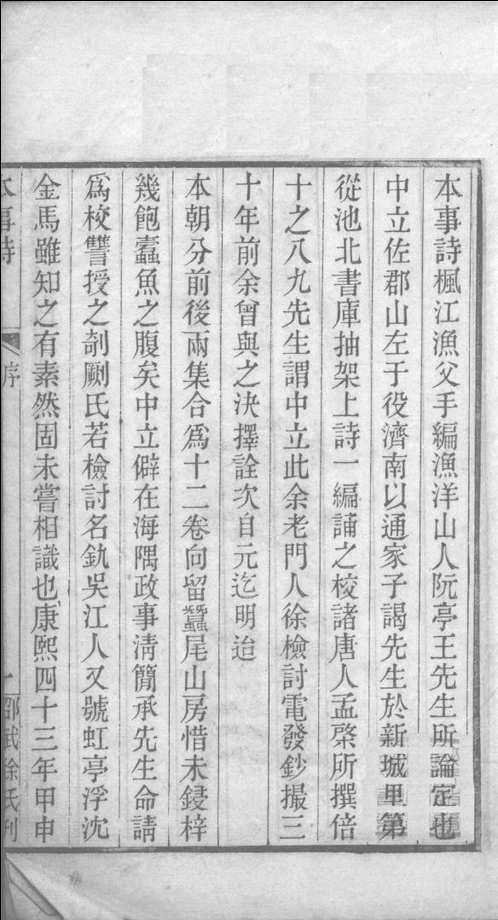 本事詩楓江漁父手編漁洋山人阮亭王先生所論定也
中立佐郡山左于役濟南以通家子謁先生於新城里第
從池北書庫抽架上詩一編誦之校諸唐人孟棨所撰倍
十之八九先生謂中立此余老門人徐檢討電發鈔撮三
十年前余曾與之決擇詮次自元迄明迨
本朝分前後兩集合爲十二卷向留蠶尾山房惜未鋟梓
幾飽蠹魚之腹矣中立僻在海隅政事淸簡承先生命請
爲校讐授之剞劂氏若檢討名釚吳江人又號虹亭浮沈
金馬雖知之有素然固未嘗相識也康熙四十三年甲申
本事詩
序
一
邵武徐氏刊